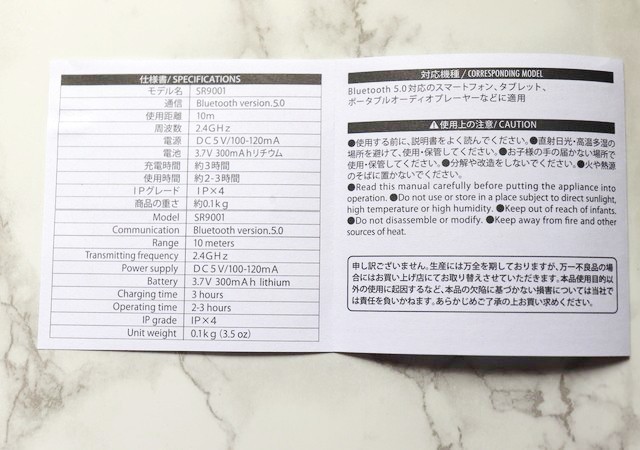 仕様書/ SPECIFICATIONS
モデル名 SR9001
通信 Bluetooth version.5.0
使用距離 10m
周波数 2.4GHz
電源 DC5V/100-120mA
電池 3.7V 300mAhリチウム
充電時間 約3時間
使用時間 約2-3時間
IPグレード IP×4
商品の重さ 約0.1kg
Model SR9001
Communication Bluetooth version.5.0
Range 10 meters
Transmitting frequency 2.4GHz
Power supply DC5V/100-120mA
Battery 3.7V 300mAh lithium
Charging time 3 hours
Operating time 2-3 hours
IP grade IP×4
Unit weight 0.1kg (3.5 oz)
対応機種 / CORRESPONDING MODEL
Bluetooth 5.0対応のスマートフォン、タブレット、
ポータブルオーディオプレーヤーなどに適用
⚠使用上の注意/ CAUTION
●使用する前に、説明書をよく読んでください。●直射日光・高温多湿の
場所を避けて、使用・保管してください。●お子様の手の届かない場所で
使用・保管してください。●分解や改造をしないでください。●火や熱源
のそばに置かないでください。
●Read this manual carefully before putting the appliance into
operation. ●Do not use or store in a place subject to direct sunlight,
high temperature or high humidity. ●Keep out of reach of infants.
●Do not disassemble or modify. ●Keep away from fire and other
sources of heat.
申し訳ございません。生産には万全を期しておりますが、万一不良品の場
合にはお買い上げ店にてお取り替えさせていただきます。本品使用目的以
外の使用に起因するなど、本品の欠陥に基づかない損害については当社で
は責任を負いかねます。あらかじめご了承の上お買い求めください。